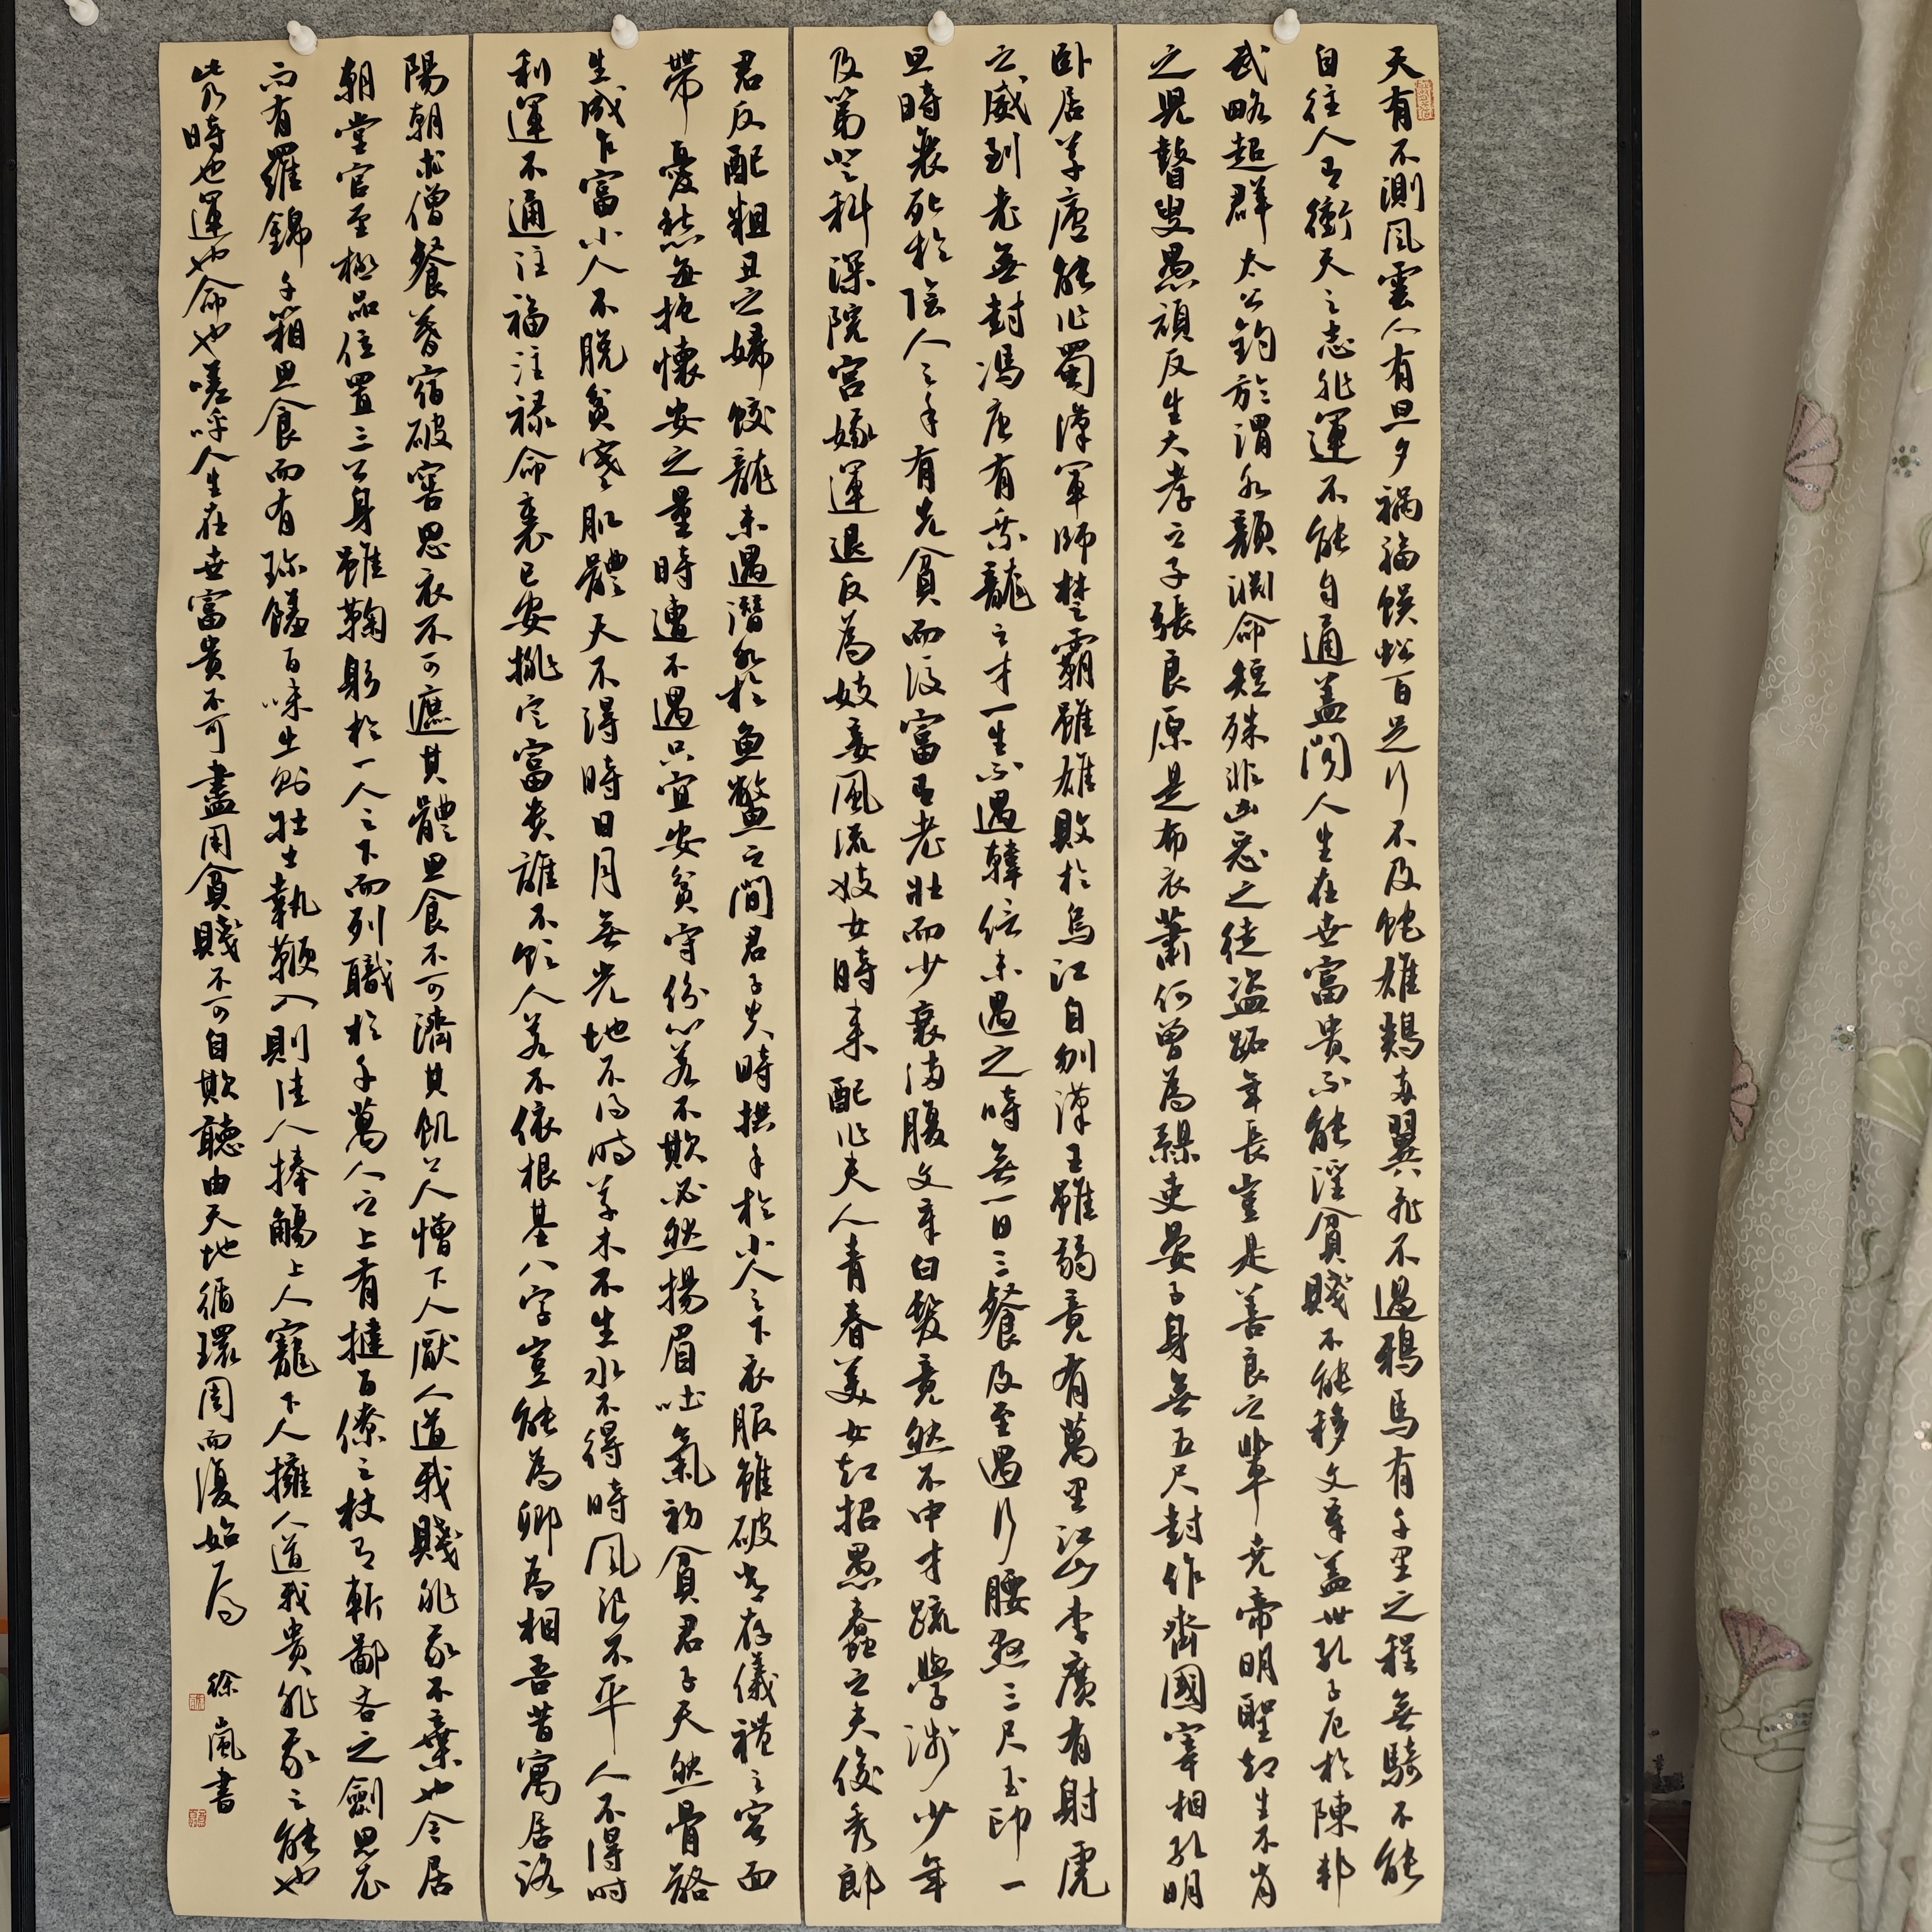 天有不測風雲人有旦夕禍福蜈蚣百足行不及蛇雄鷄兩翼飛不過鴉馬有千里之程無騎不能
自往人有衝天之志非運不能自通蓋聞人生在世富貴不能淫貧賤不能移文章蓋世孔子厄於陳邦
武略超群太公釣於渭水顏淵命短殊非凶惡之徒盜跖年長豈是善良之輩堯帝明聖却生不肖
之兒瞽叟愚頑反生大孝之子張良原是布衣蕭何曾為縣吏晏子身無五尺封作齊國宰相孔明
卧居草廬能作蜀漢軍師楚霸雖雄敗於烏江自刎漢王雖弱竟有萬里江山李廣有射虎
之威到老無封馮唐有乘龍之才一生不遇韓信未遇之時無一日三餐及至遇行腰懸三尺玉印一
旦時衰死於陰人之手有先貧而後富有老壯而少衰滿腹文章白髮竟然不中才疏學淺少年
及第登科深院宮嬪運退反為妓妾風流妓女時來配作夫人青春美女却招愚蠢之夫俊秀郎
君反配粗丑之婦蛟龍未遇潛水於魚鱉之間君子失時拱手於小人之下衣服雖破常存儀禮之容面
帶憂愁每抱懷安之量時遭不遇只宜安貧守份心若不欺必然揚眉吐氣初貧君子天然骨骼
生成乍富小人不脫貧寒肌體天不得時日月無光地不得時草木不生水不得時風浪不平人不得時
利運不通注福注祿命裏已安排定富貴誰不欲人若不依根基八字豈能為卿為相吾昔寓居洛
陽朝求僧餐暮宿破窖思衣不可遮其體思食不可濟其飢上人憎下人厭人道我賤非我不棄也今居
朝堂官至極品位置三公身雖鞠躬於一人之下而列職於千萬人之上有撻百僚之杖有斬鄙吝之劍思衣
而有羅錦千箱思食而有珍饈百味出則壯士執鞭入則佳人捧觴上人寵下人擁人道我貴非我之能也
此乃時也運也命也嗟呼人生在世富貴不可盡用貧賤不可自欺聽由天地循環周而復始焉
徐嵐書